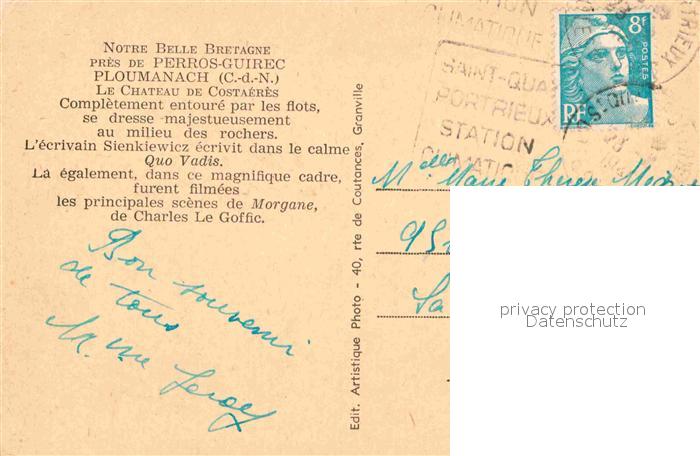 NOTRE BELLE BRETAGNE
PRÈS DE PERROS-GUIREC
PLOUMANACH (C.-d.-N.)
LE CHATEAU DE COSTAÉRÈS
Complètement entouré par les flots,
se dresse majestueusement
au milieu des rochers.
L'écrivain Sienkiewicz écrivit dans le calme
Quo Vadis.
Là également, dans ce magnifique cadre,
furent filmées
les principales scènes de Morgane,
de Charles Le Goffic.
Bon souvenir
de tous
M. Mme Leroy
Edit. Artistique Photo - 40, rte de Coutances, Granville
CLIMATIQUE
SAINT-QUAY
PORTRIEUX
STATION
CLIMATIQUE
8F
POSTES
RF
Melle Marie Thérèse
privacy protection
Datenschutz